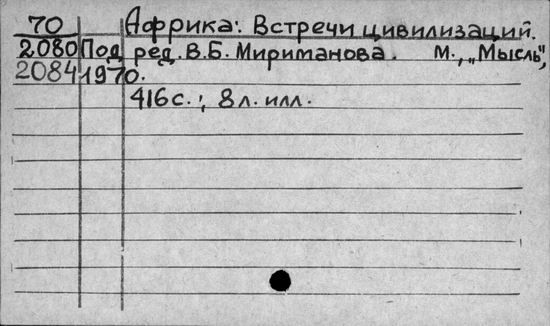 70 Африка: Встречи цивилизаций.
2080 Под ред. В.Б. Мириманова. М., „Мысль",
2084 1970.
416с.; 8л. илл.